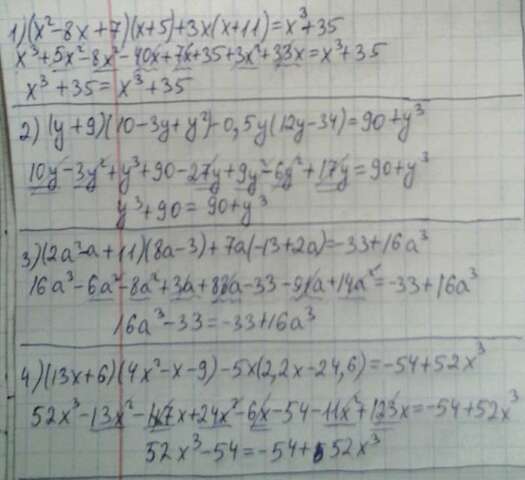 1) (x²-8x+7)(x+5)+3x(x+11)=x³+35
x³+5x²-8x²-40x+7x+35+3x²+33x=x³+35
x³+35=x³+35
2) (y+9)(10-3y+y²)-0,5y(12y-34)=90+y³
10y-3y²+y³+90-27y+9y²-6y²+17y=90+y³
y³+90=90+y³
3) (2a²-a+11)(8a-3)+7a(-13+2a)=-33+16a³
16a³-6a²-8a²+3a+88a-33-91a+14a²=-33+16a³
16a³-33=-33+16a³
4) (13x+6)(4x²-x-9)-5x(2,2x-24,6)=-54+52x³
52x³-13x²-117x+24x²-6x-54-11x²+123x=-54+52x³
52x³-54=-54+52x³